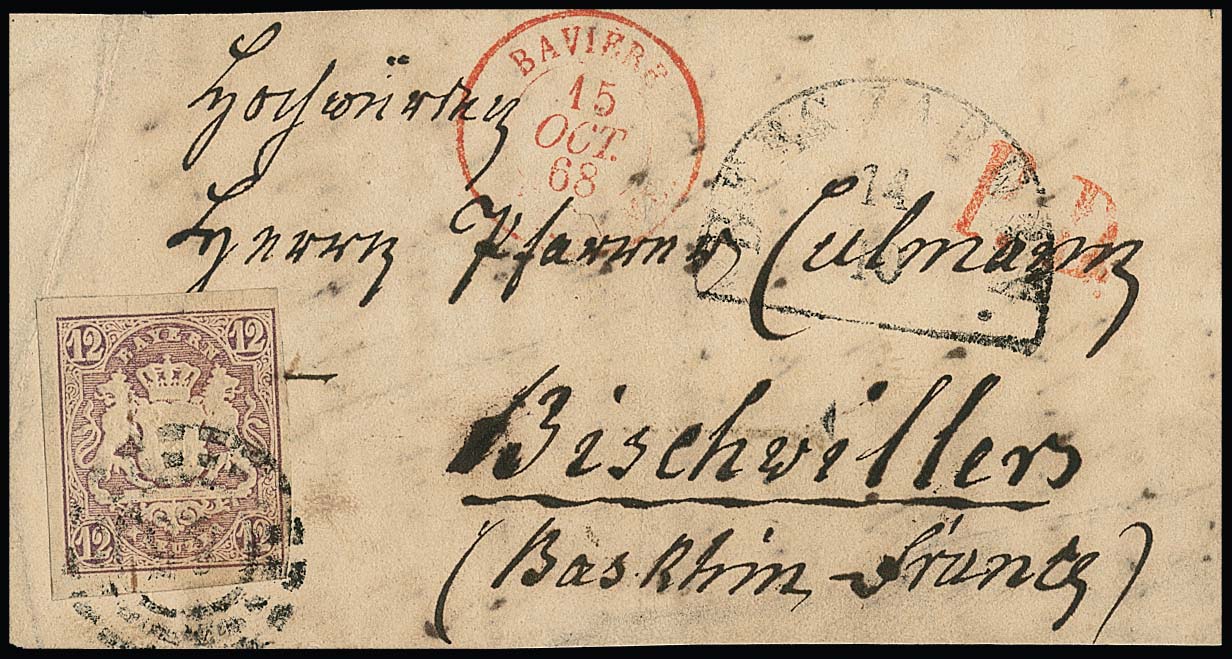 BAVIERE
15
OCT.
68
BERGZABERN
14
10
P.D.
Hochwürden
Herrn Pfarrer Culmann
Bischwillers
(Bas Rhin – France)
12 12
BAYERN
12 12